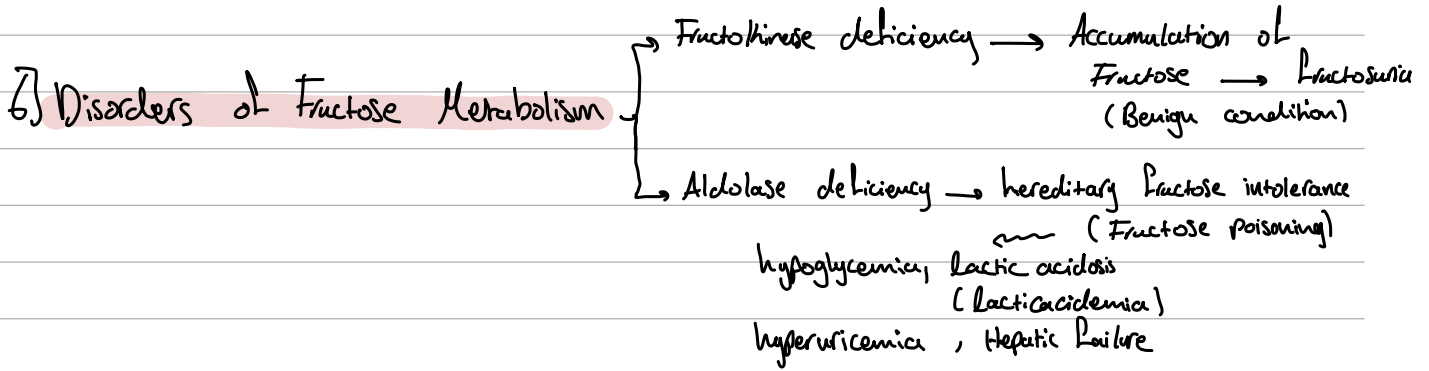 6] Disorders of Fructose Metabolism
Fructokinese deficiency → Accumulation of
Fructose → fructosuria
(Benign condition)
Aldolase deficiency → hereditary fructose intolerance
(Fructose poisoning)
hypoglycemia, lactic acidosis
(lacticacidemia)
hyperuricemia , Hepatic failure